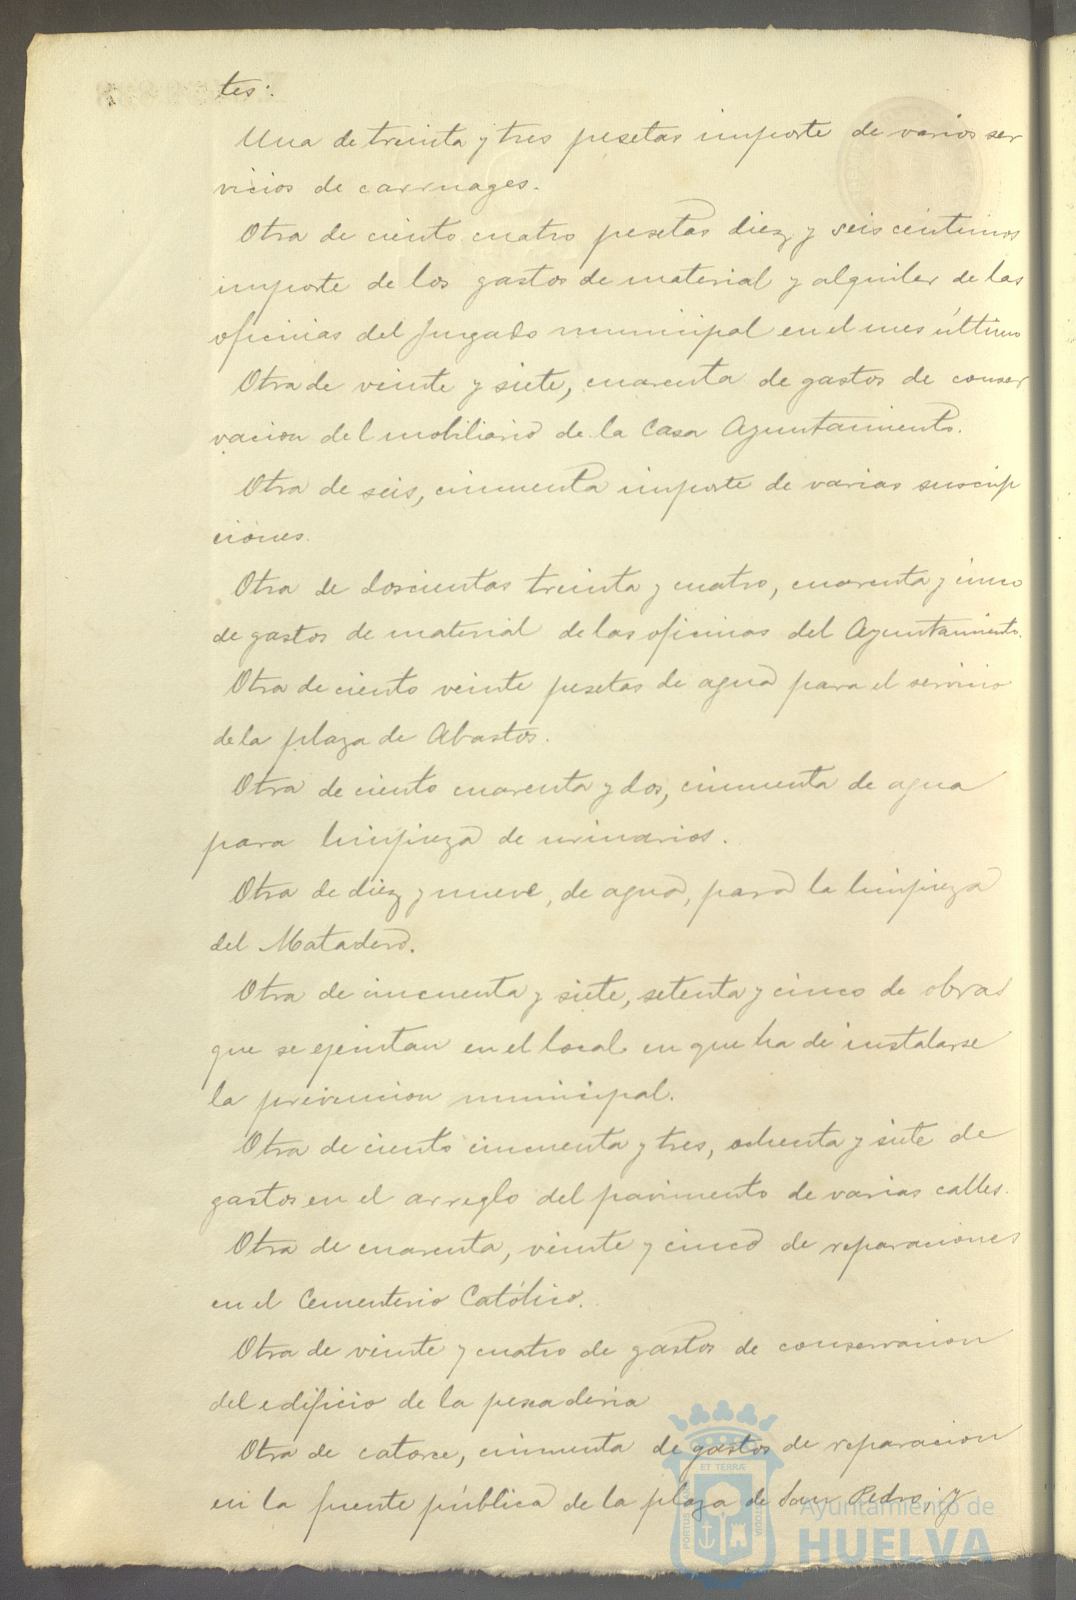 tes:
Una de treinta y tres pesetas importe de varios ser
vicios de carruages.
Otra de ciento cuatro pesetas diez y seis centimos
importe de los gastos de material y alquiler de las
oficinas del Juzgado municipal en el mes último
Otra de veinte y siete, cuarenta de gastos de conser
vacion del mobiliario de la Casa Ayuntamiento.
Otra de seis, cincuenta importe de varias suscrip
ciones.
Otra de doscientas treinta y cuatro, cuarenta y cinco
de gastos de material de las oficinas del Ayuntamiento.
Otra de ciento veinte pesetas de agua para el servicio
de la plaza de Abastos.
Otra de ciento cuarenta y dos, cincuenta de agua
para limpieza de urinarios.
Otra de diez y nueve, de agua, para la limpieza
del Matadero.
Otra de cincuenta y siete, setenta y cinco de obras
que se ejecutan en el local en que ha de instalarse
la prevencion municipal.
Otra de ciento cincuenta y tres, ochenta y siete de
gastos en el arreglo del pavimento de varias calles.
Otra de cuarenta, veinte y cinco de reparaciones
en el Cementerio Católico.
Otra de veinte y cuatro de gastos de conservacion
del edificio de la pescaderia
Otra de catorce, cincuenta de gastos de reparacion
en la fuente pública de la plaza de San Pedro; y
ET TERRÆ
PORTUS
CUSTODIA
Ayuntamiento de
HUELVA